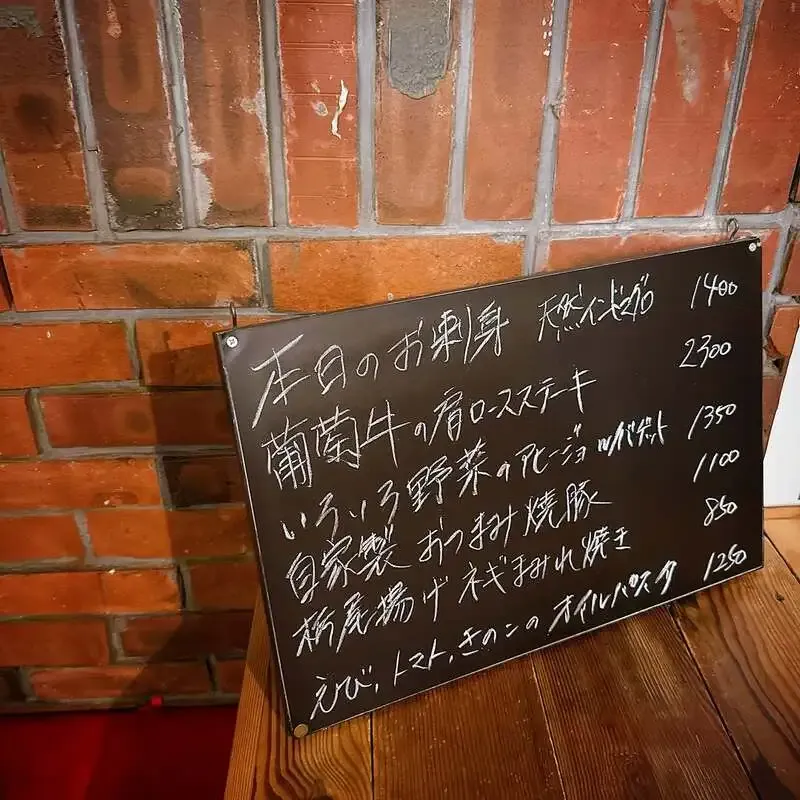 本日のお刺身 天然インドマグロ 1400
葡萄牛の肩ロースステーキ 2300
いろいろ野菜のアヒージョ w/バゲット 1350
自家製 おつまみ焼豚 1100
栃尾揚げ ネギまみれ焼き 850
えび、トマト、きのこの オイルパスタ 1250